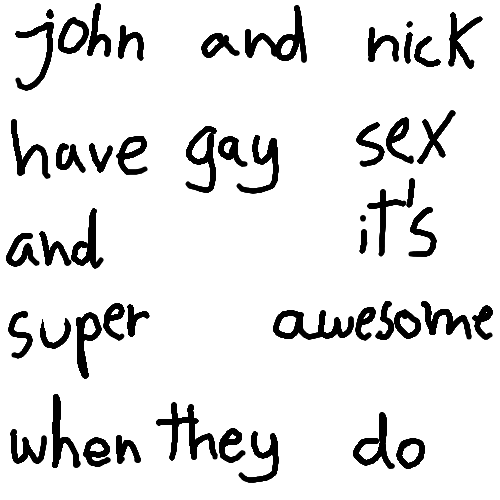 john and nick
have gay sex
and it's
super awesome
when they do